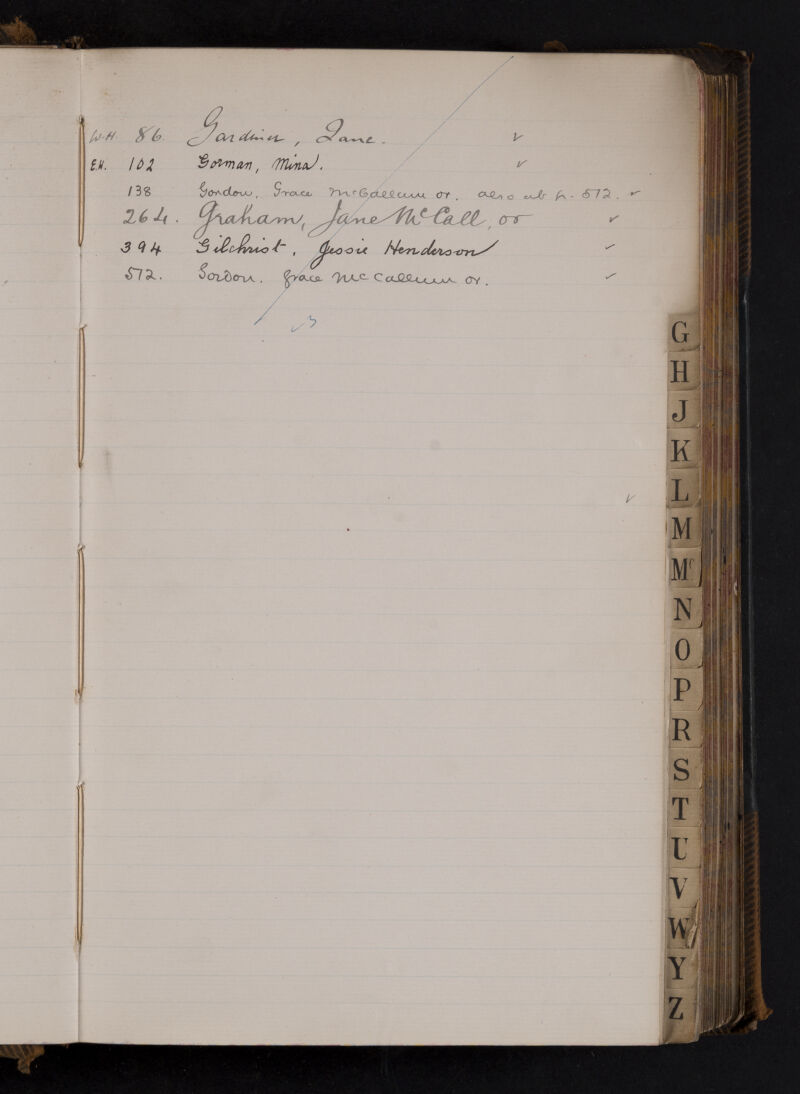 W.H. 86. Gardiner, Jane. ✓
E.H. 102 Gorman, Mina. ✓
138 Gordon, Grace McCallum or. also at p. 572. ✓
264. Graham, Jane McCall, or ✓
394 Gilchrist, Jessie Henderson ✓
572. Gordon. Grace McCallum or. ✓
✓
✓
G
H
J
K
L
M
Mc
N
O
P
R
S
T
U
V
W
Y
Z